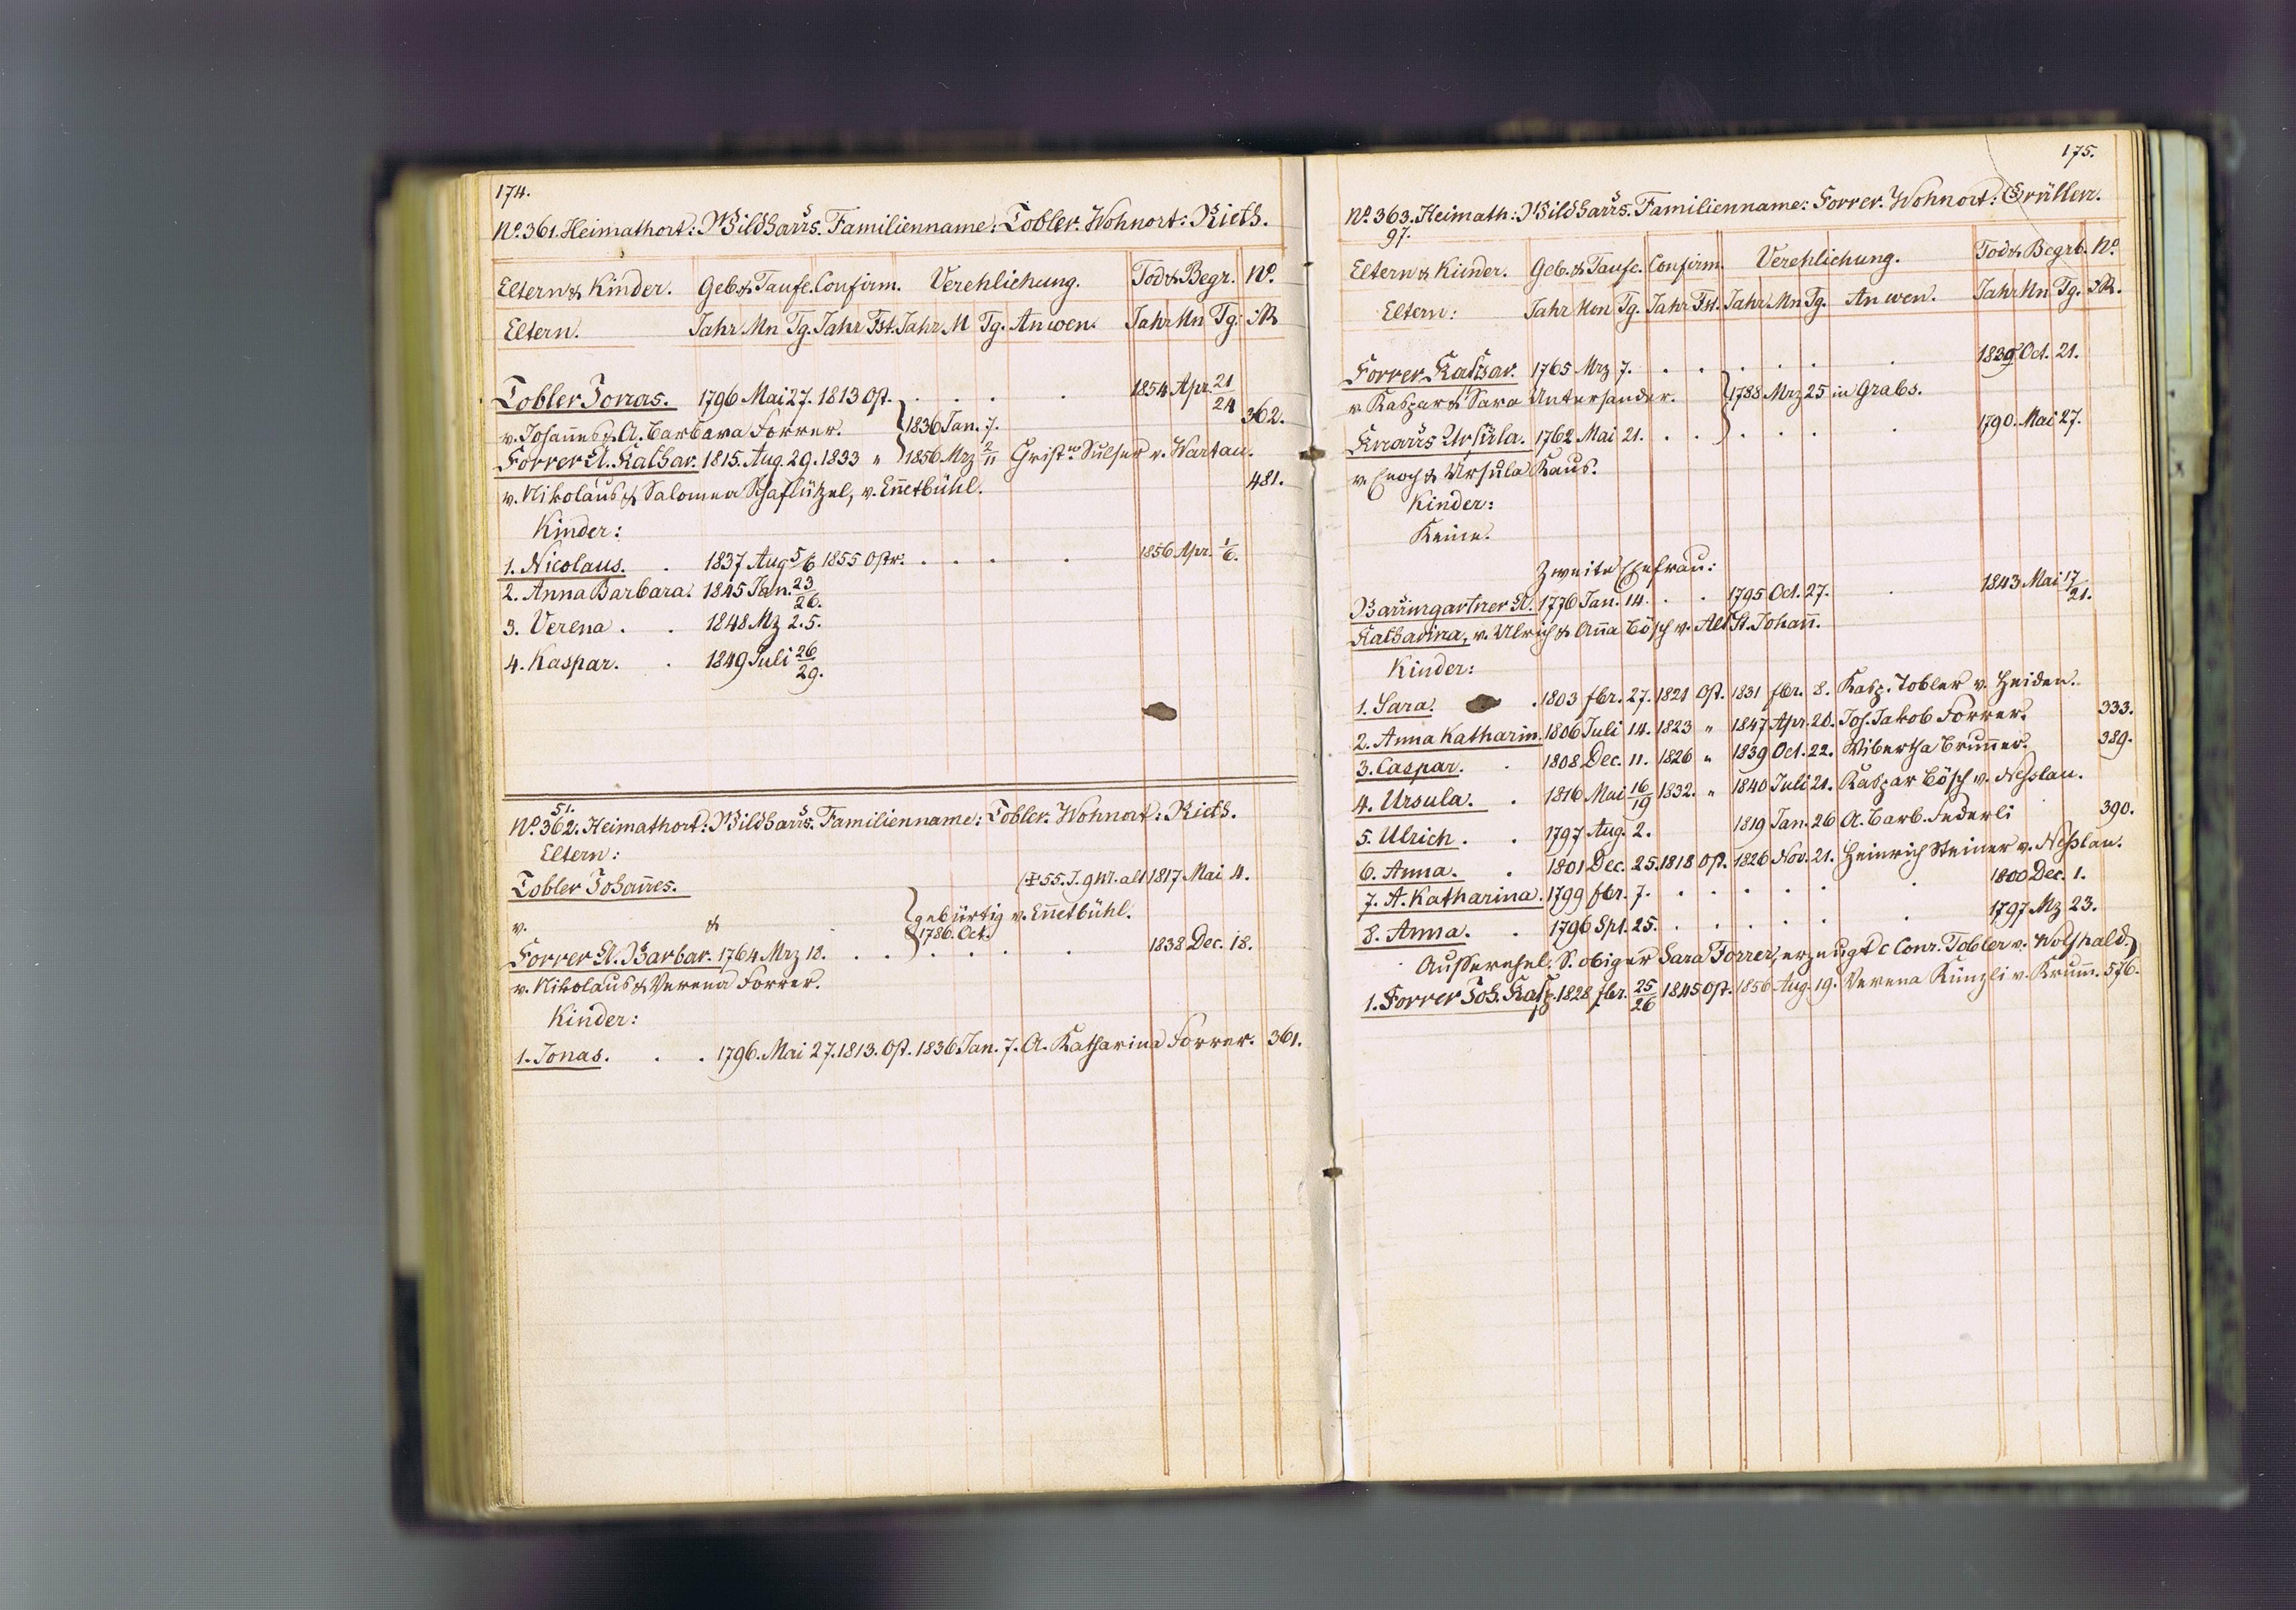 174.
No. 361. Heimathort: Wildhaus. Familienname: Tobler. Wohnort: Rieth.
Eltern & Kinder. Geb. & Taufe. Confirm. Verehlichung. Tod & Begr. No.
Eltern. Jahr Mn Tg. Jahr Fst. Jahr M Tg. An wen. Jahr Mn Tg. R
Tobler Jonas. 1796 Mai 27. 1813 Ost. . . . . 1854 Apr. 21/24
v. Johannes & A. Barbara Forrer. 1836 Jan. 7. 362.
Forrer A. Kathar. 1815. Aug. 29. 1833 " 1856 Mrz 2/11 Christn. Sulser v. Wartau.
v. Nikolaus & Salomea Schaflützel, v. Ennetbühl. 481.
Kinder:
1. Nicolaus. . 1837 Aug 5/6 1855 Ostr. . . . . 1856 Apr. 1/6.
2. Anna Barbara. 1845 Jan. 23/26.
3. Verena . . 1848 Mz 2. 5.
4. Kaspar. . 1849 Juli 26/29.
51.
No. 362. Heimathort: Wildhaus. Familienname: Tobler. Wohnort: Rieth.
Eltern:
Tobler Johannes. 55. J. 9 M. alt 1817 Mai 4.
v. & gebürtig v. Ennetbühl.
1786. Oct.
Forrer A. Barbar. 1764 Mrz 18. . . . . . . . 1838 Dec. 18.
v. Nikolaus & Verena Forrer.
Kinder:
1. Jonas. . . 1796. Mai 27. 1813. Ost. 1836 Jan. 7. A. Katharina Forrer. 361.
175.
No. 363. Heimath: Wildhaus. Familienname: Forrer. Wohnort: Grällen.
97.
Eltern & Kinder. Geb. & Taufe. Confirm. Verehlichung. Tod & Begrb. No.
Eltern: Jahr Mon Tg. Jahr Fst. Jahr Mn Tg. An wen. Jahr Mn Tg. R.
Forrer Kathar. 1765 Mrz 7. . . . . . . 1839 Oct. 21.
v. Kaspar & Sara Untersander. 1788 Mrz 25 in Grabs.
Knaus Ursula. 1762 Mai 21. . . . . . . 1790. Mai 27.
v. Enoch & Ursula Kaus.
Kinder:
Keine.
Zweite Ehefrau:
Baumgartner A. 1776 Jan. 14. . . 1795 Oct. 27. . 1843 Mai 17/21.
Katharina, v. Ulrich & Anna Bösch v. Alt St. Johann.
Kinder:
1. Sara. . 1803 fbr. 27. 1821 Ost. 1831 fbr. 8. Kasp. Tobler v. Heiden.
2. Anna Katharin. 1806 Juli 14. 1823 " 1847 Apr. 20. Joh. Jakob Forrer. 333.
3. Caspar. . 1808 Dec. 11. 1826 " 1839 Oct. 22. Wibertha Brunner. 389.
4. Ursula. . 1816 Mai 16/19 1832. " 1840 Juli 21. Kaspar Bösch v. Nesslau.
5. Ulrich . . 1797 Aug. 2. 1819 Jan. 26 A. Barb. Federli 390.
6. Anna. . 1801 Dec. 25. 1818 Ost. 1826 Nov. 21. Heinrich Steiner v. Nesslau.
7. A. Katharina. 1799 fbr. 7. . . . . . . 1800 Dec. 1.
8. Anna. . 1796 Spt. 25. . . . . . . 1797 Mz 23.
Ausserehel. S. obiger Sara Forrer, erzeugt c Conr. Tobler v. Wolfhald.
1. Forrer Joh. Kasp. 1828 fbr. 25/26 1845 Ost. 1856 Aug. 19. Verena Künzli v. Krumm. 576.